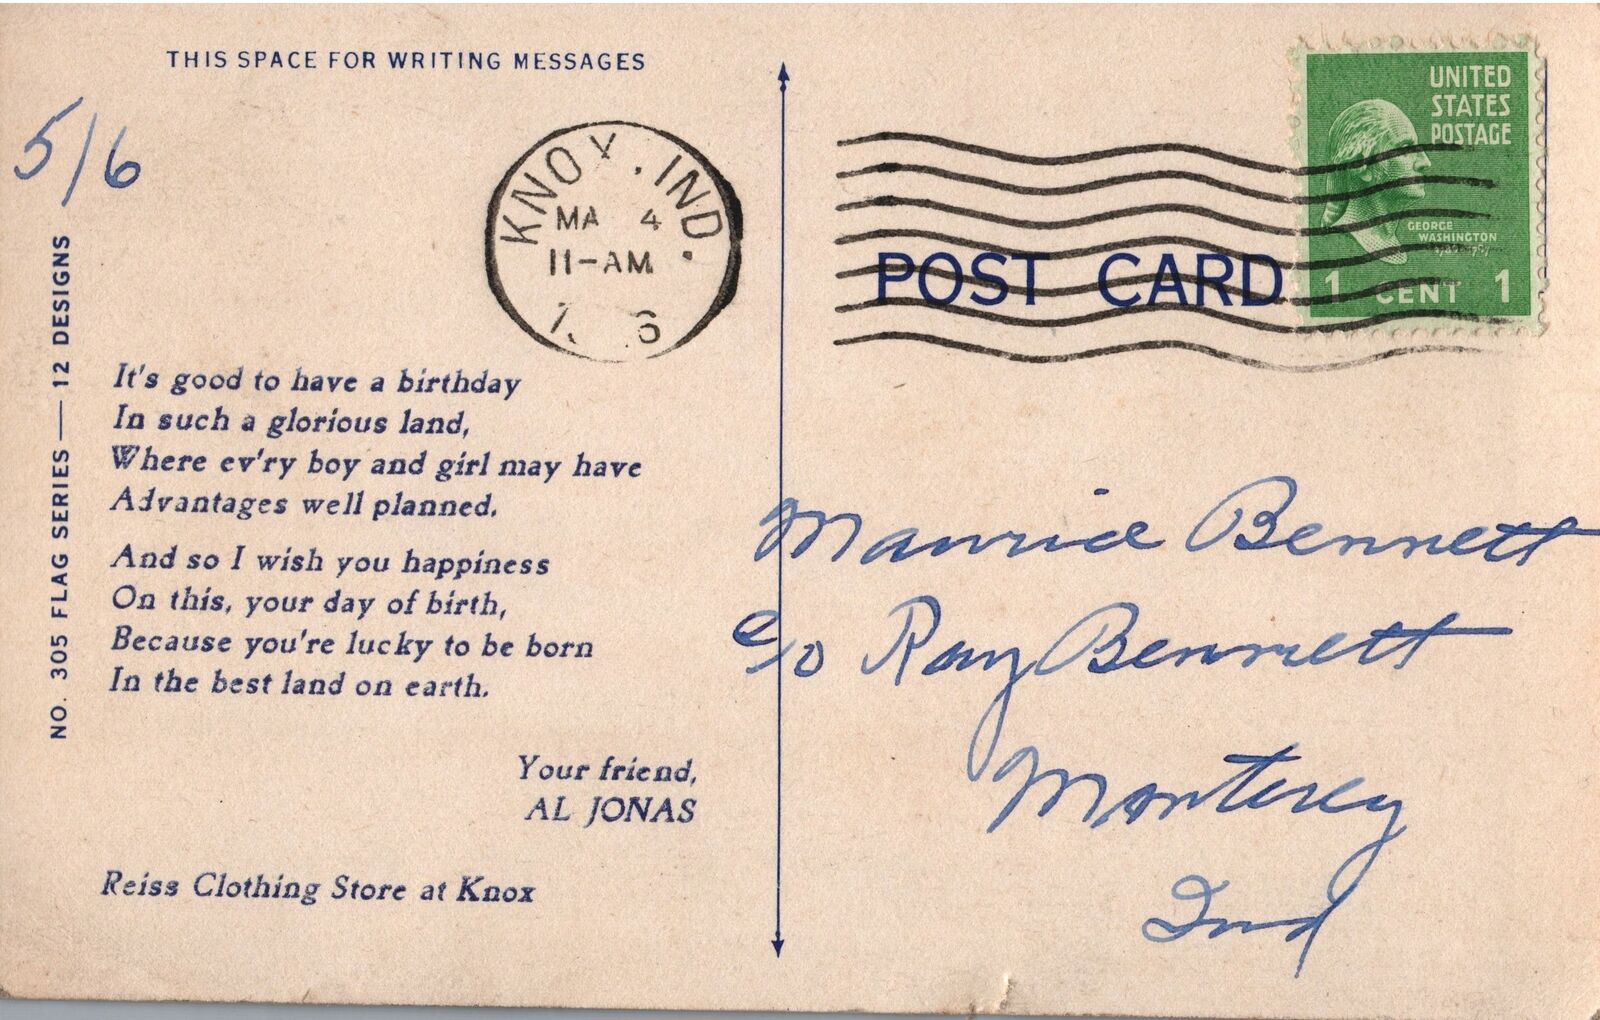 THIS SPACE FOR WRITING MESSAGES
5/6
KNOX, IND.
MA 4
11-AM
6
UNITED
STATES
POSTAGE
GEORGE
WASHINGTON
1 CENT 1
POST CARD
NO. 305 FLAG SERIES — 12 DESIGNS
It's good to have a birthday
In such a glorious land,
Where ev'ry boy and girl may have
Advantages well planned.
And so I wish you happiness
On this, your day of birth,
Because you're lucky to be born
In the best land on earth.
Your friend,
AL JONAS
Reiss Clothing Store at Knox
Maurice Bennett
c/o Ray Bennett
Monterey
Ind